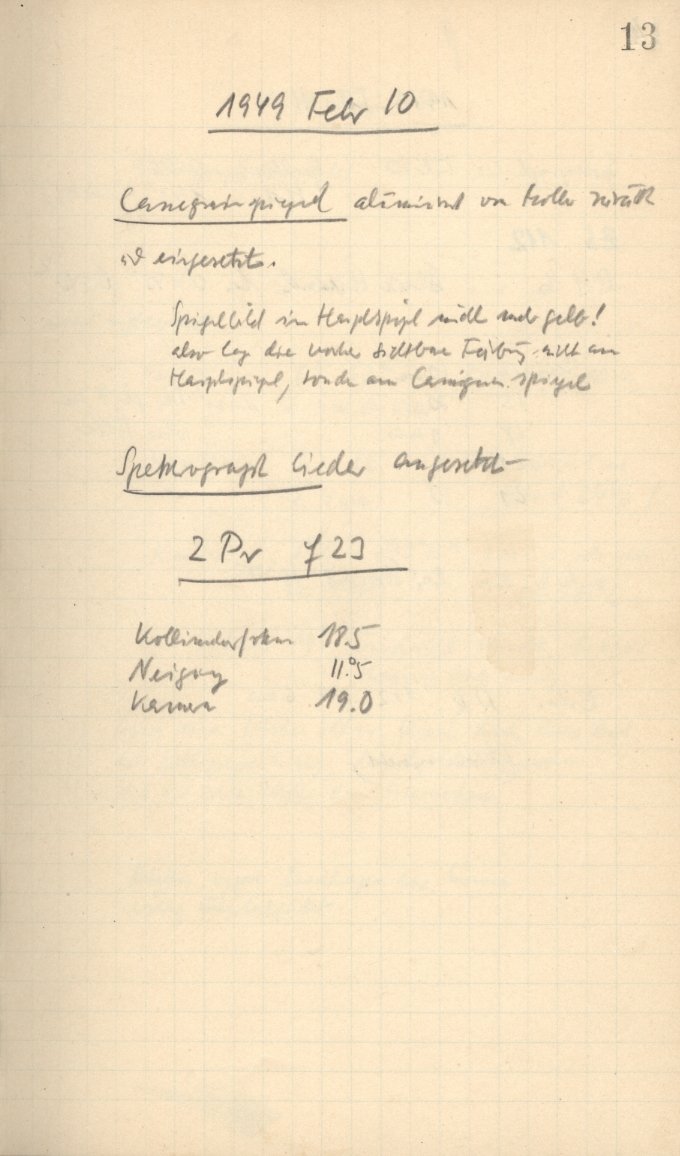 13
1949 Febr 10
Cassegrainspiegel aluminisiert von zurück
und eingesetzt.
Spiegelbild im Hauptspiegel nicht mehr gelb!
also lag die vorher sichtbare Färbung nicht am
Hauptspiegel, sondern am Cassegrain.spiegel
Spektrograph wieder angesetzt
2 Pr f 23
Kollimatorfokus 18.5
Neigung 11.°5
Kamera 19.0